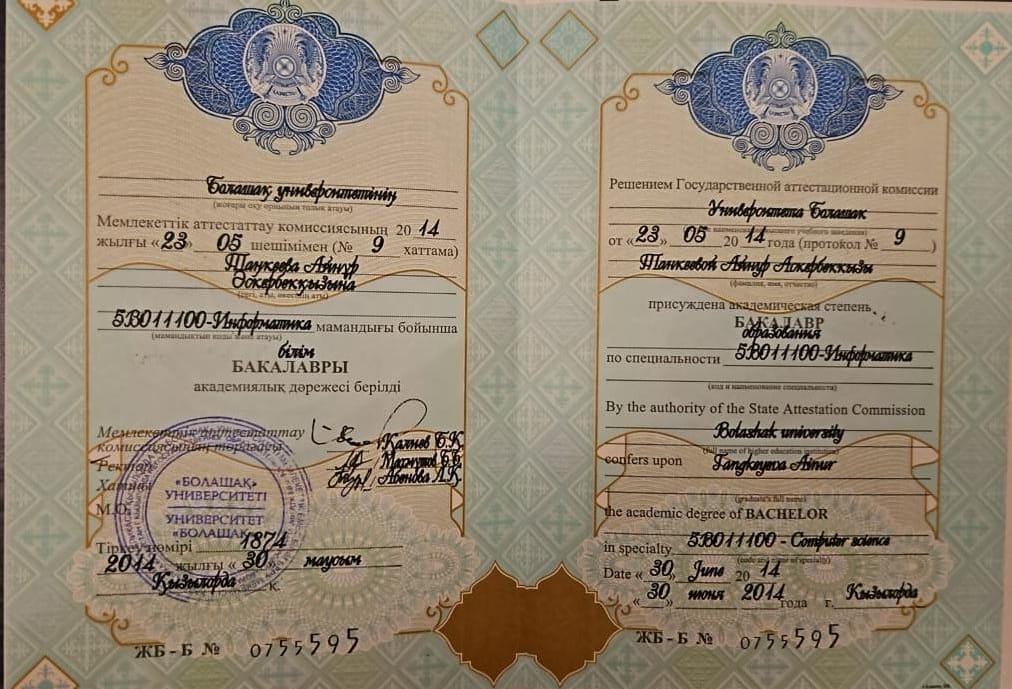 Болашақ университетінің
(жоғары оқу орнының толық атауы)
Мемлекеттік аттестаттау комиссиясының 2014
жылғы «23» 05 шешімімен (№ 9 хаттама)
Танкеева Айнур
Әскербекқызына
(тегі, аты, әкесінің аты)
5В011100-Информатика мамандығы бойынша
(мамандықтың коды және атауы)
білім
БАКАЛАВРЫ
академиялық дәрежесі берілді
Мемлекеттік аттестаттау
комиссиясының төрағасы Қалиев Б.Қ.
Ректор
Хатшы Абенова Л.Қ.
М.О.
«БОЛАШАҚ»
УНИВЕРСИТЕТІ
УНИВЕРСИТЕТ
«БОЛАШАК»
Тіркеу нөмірі 1874
2014 жылғы «30» маусым
Қызылорда қ.
ЖБ-Б № 0755595
Решением Государственной аттестационной комиссии
Университета Болашак
(полное наименование высшего учебного заведения)
от «23» 05 2014 года (протокол № 9)
Танкеевой Айнур Аскербеккызы
(фамилия, имя, отчество)
присуждена академическая степень
БАКАЛАВР
образования
по специальности 5В011100-Информатика
(код и наименование специальности)
By the authority of the State Attestation Commission
Bolashak university
(full name of higher education institution)
confers upon Tangkeyeva Ainur
(graduate's full name)
the academic degree of BACHELOR
in specialty 5B011100 - Computer science
(code and name of specialty)
Date «30» June 2014
«30» июня 2014 года г. Кызылорда
ЖБ-Б № 0755595